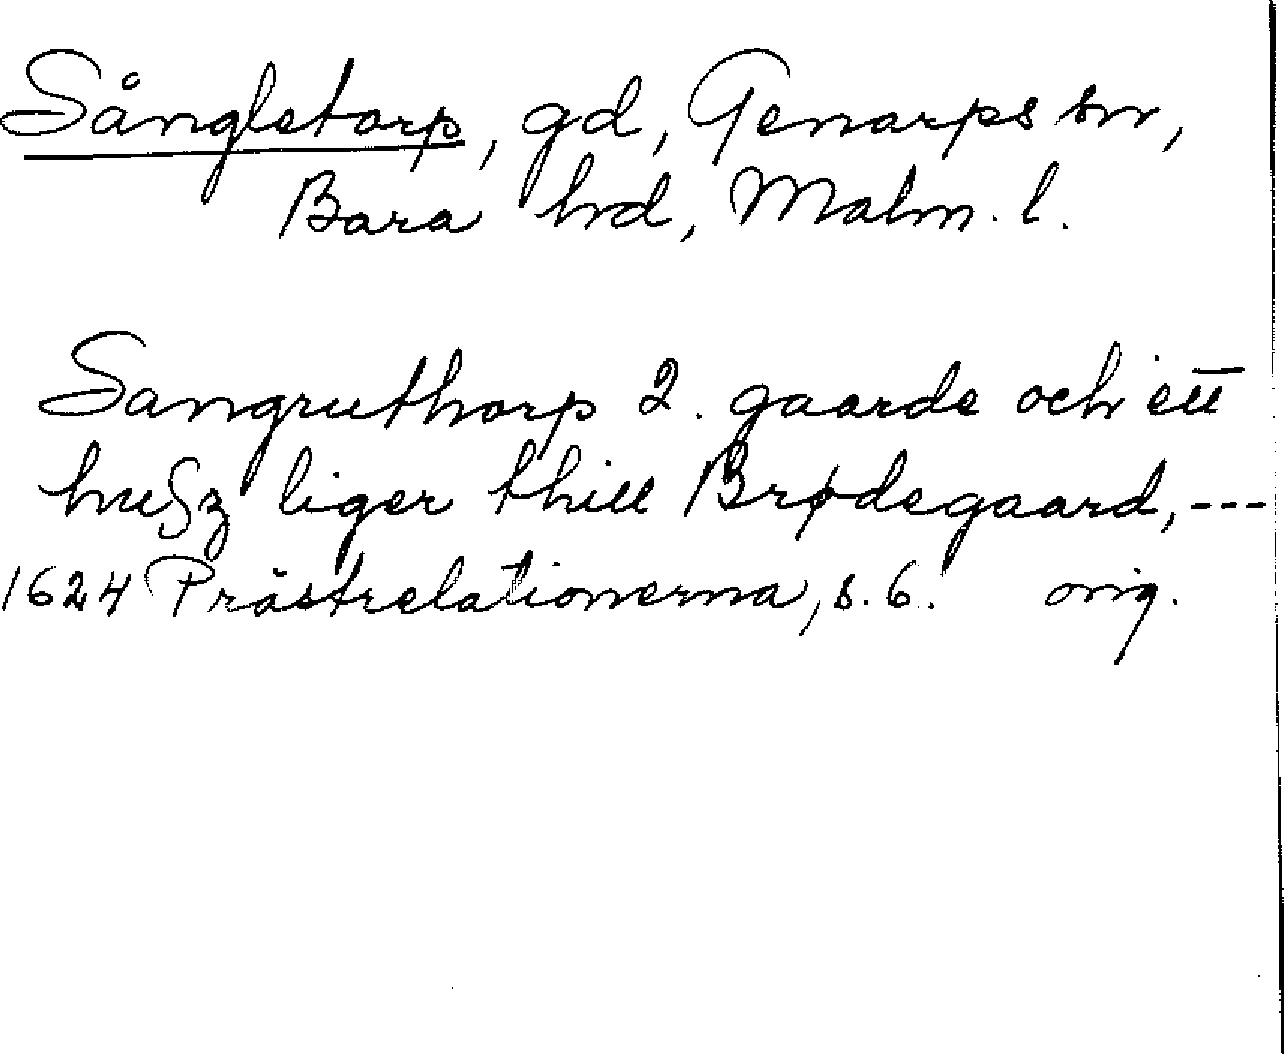 Sångletorp, gd, Genarps sn,
Bara hd, Malm. l.
Sangruthorp 2. gaarde och ett
huſz liger thill Brødegaard, ---
1624 Prästrelationerna, s. 6. orig.